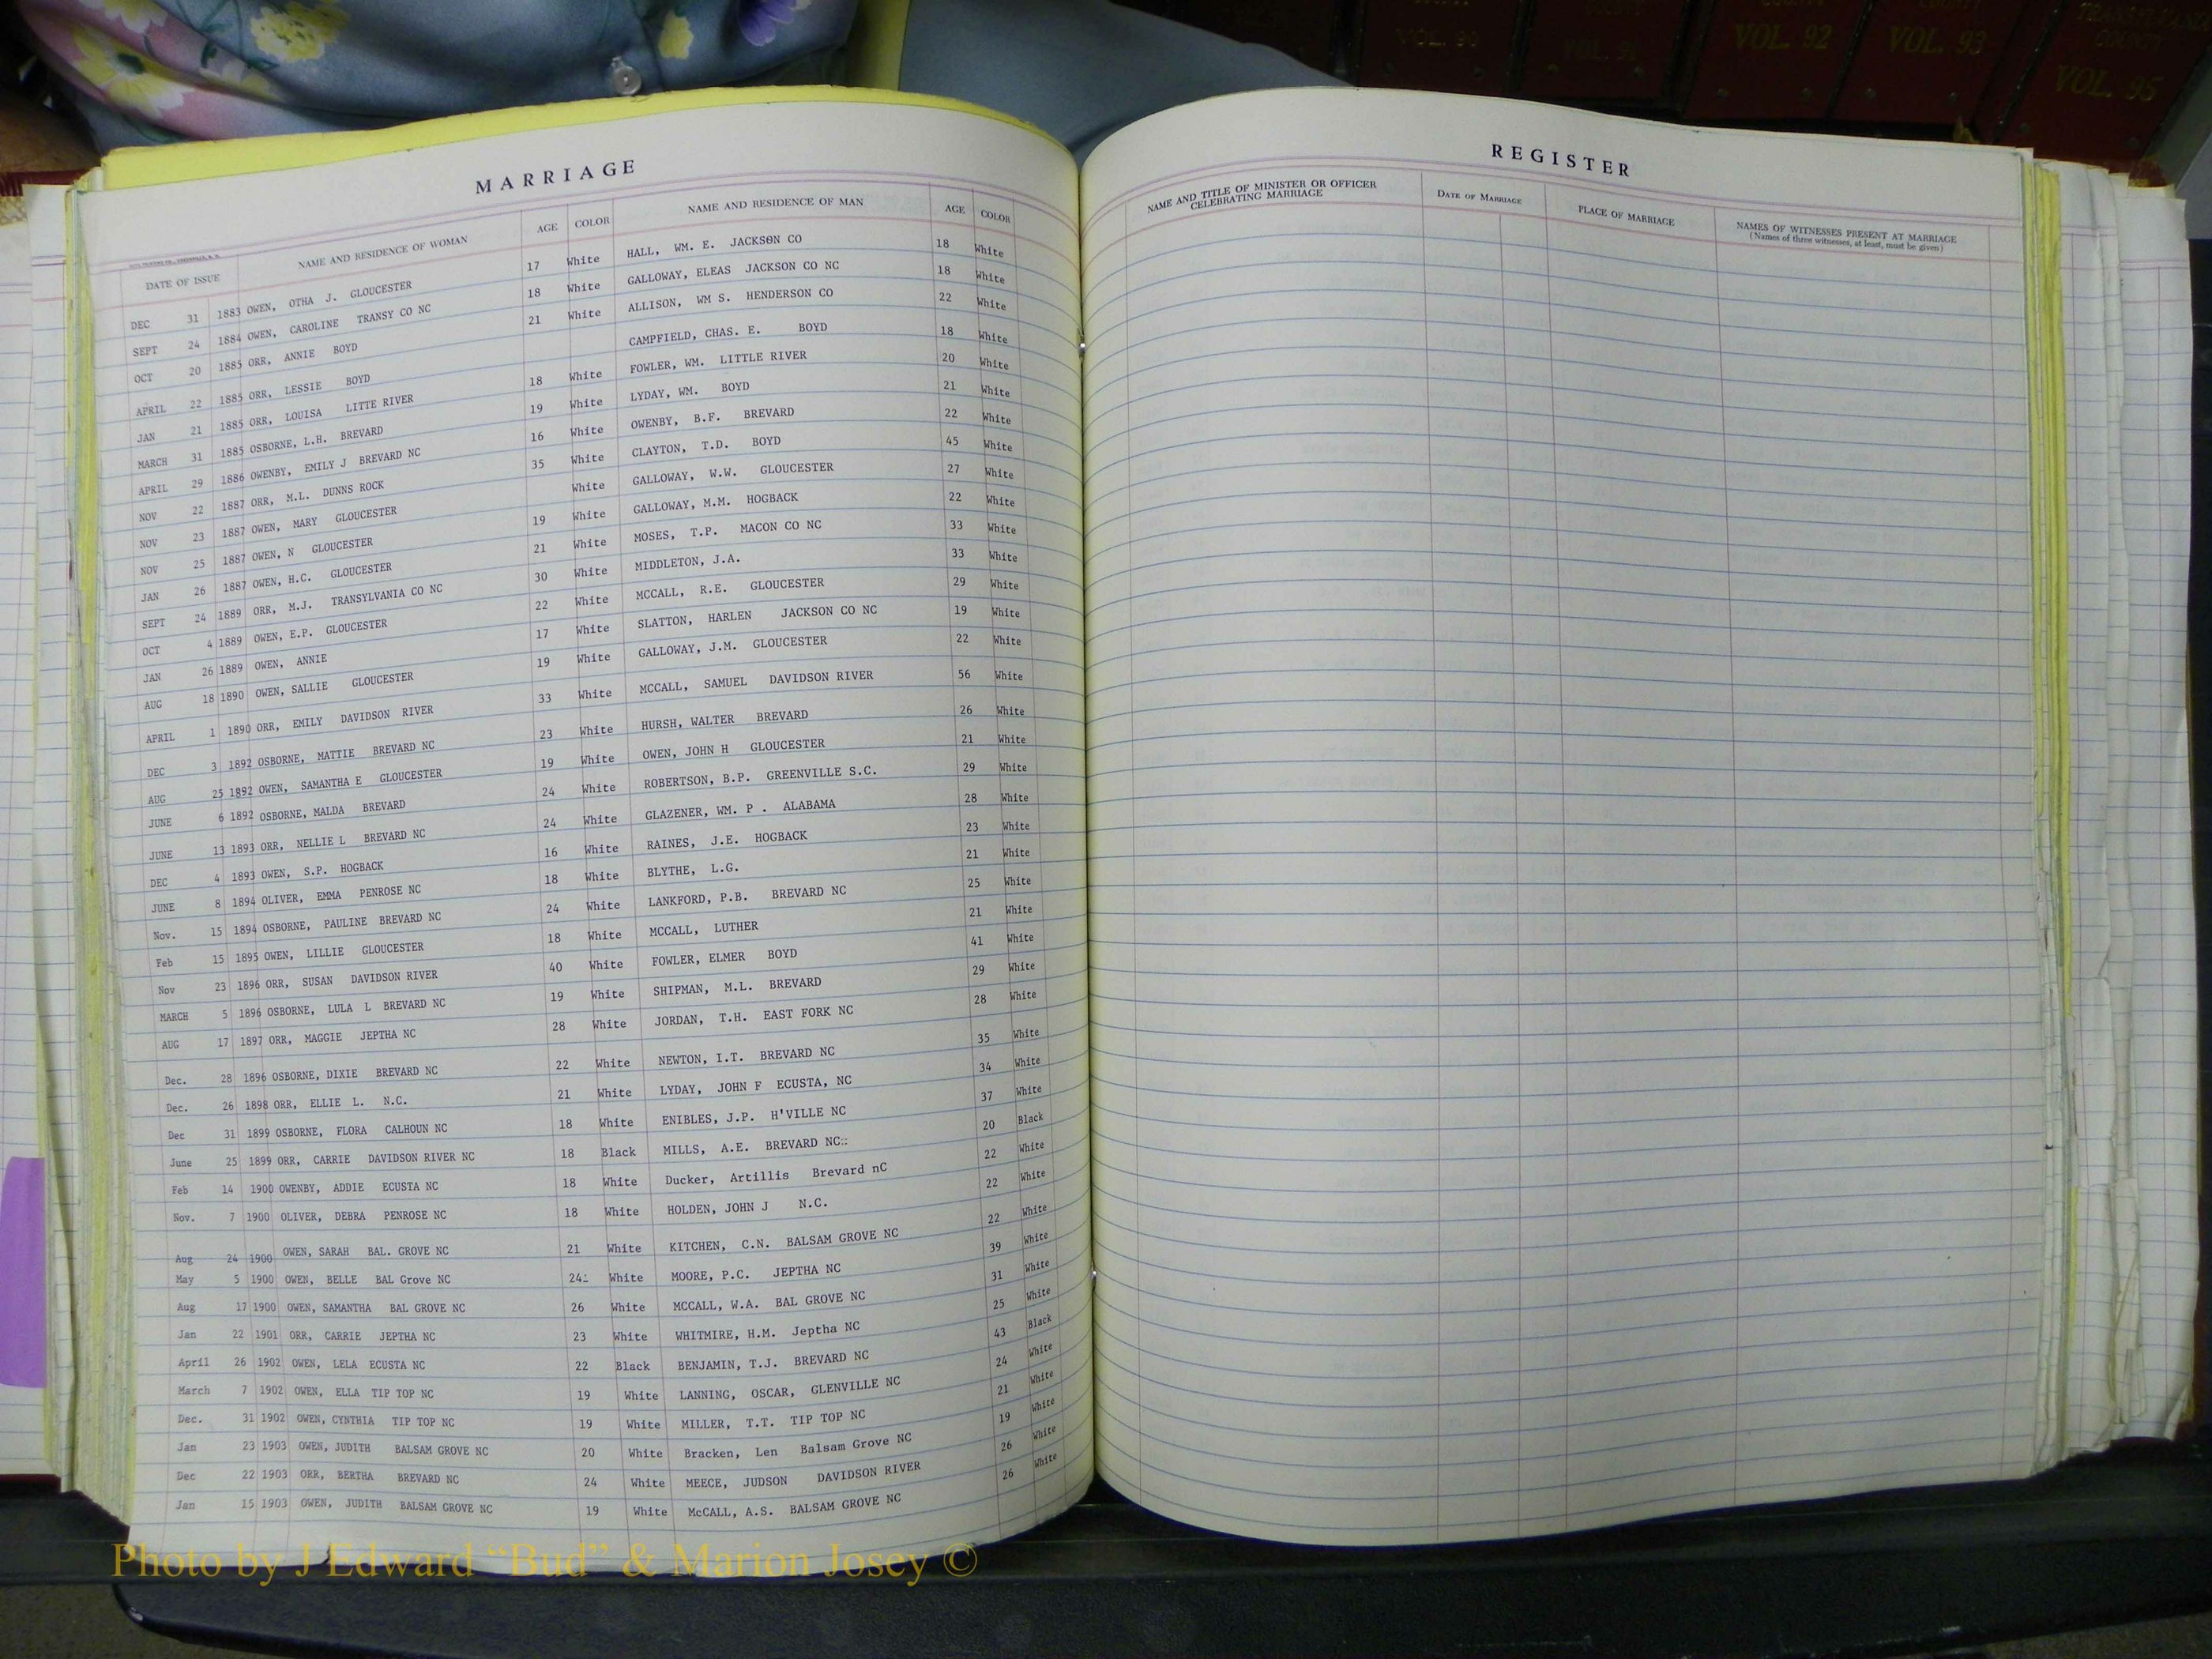 COUNTY
VOL. 90
VOL. 91
COUNTY
VOL. 92
COUNTY
VOL. 93
TRANSYLVANIA
COUNTY
VOL. 95
MARRIAGE
DATE OF ISSUE NAME AND RESIDENCE OF WOMAN AGE COLOR NAME AND RESIDENCE OF MAN AGE COLOR
DEC 31 1883 OWEN, OTHA J. GLOUCESTER 17 White HALL, WM. E. JACKSON CO 18 White
SEPT 24 1884 OWEN, CAROLINE TRANSY CO NC 18 White GALLOWAY, ELEAS JACKSON CO NC 18 White
OCT 20 1885 ORR, ANNIE BOYD 21 White ALLISON, WM S. HENDERSON CO 22 White
APRIL 22 1885 ORR, LESSIE BOYD CAMPFIELD, CHAS. E. BOYD 18 White
JAN 21 1885 ORR, LOUISA LITTE RIVER 18 White FOWLER, WM. LITTLE RIVER 20 White
MARCH 31 1885 OSBORNE, L.H. BREVARD 19 White LYDAY, WM. BOYD 21 White
APRIL 29 1886 OWENBY, EMILY J BREVARD NC 16 White OWENBY, B.F. BREVARD 22 White
NOV 22 1887 ORR, M.L. DUNNS ROCK 35 White CLAYTON, T.D. BOYD 45 White
NOV 23 1887 OWEN, MARY GLOUCESTER White GALLOWAY, W.W. GLOUCESTER 27 White
NOV 25 1887 OWEN, N GLOUCESTER 19 White GALLOWAY, M.M. HOGBACK 22 White
JAN 26 1887 OWEN, H.C. GLOUCESTER 21 White MOSES, T.P. MACON CO NC 33 White
SEPT 24 1889 ORR, M.J. TRANSYLVANIA CO NC 30 White MIDDLETON, J.A. 33 White
OCT 4 1889 OWEN, E.P. GLOUCESTER 22 White MCCALL, R.E. GLOUCESTER 29 White
JAN 26 1889 OWEN, ANNIE 17 White SLATTON, HARLEN JACKSON CO NC 19 White
AUG 18 1890 OWEN, SALLIE GLOUCESTER 19 White GALLOWAY, J.M. GLOUCESTER 22 White
APRIL 1 1890 ORR, EMILY DAVIDSON RIVER 33 White MCCALL, SAMUEL DAVIDSON RIVER 56 White
DEC 3 1892 OSBORNE, MATTIE BREVARD NC 23 White HURSH, WALTER BREVARD 26 White
AUG 25 1892 OWEN, SAMANTHA E GLOUCESTER 19 White OWEN, JOHN H GLOUCESTER 21 White
JUNE 6 1892 OSBORNE, MALDA BREVARD 24 White ROBERTSON, B.P. GREENVILLE S.C. 29 White
JUNE 13 1893 ORR, NELLIE L BREVARD NC 24 White GLAZENER, WM. P . ALABAMA 28 White
DEC 4 1893 OWEN, S.P. HOGBACK 16 White RAINES, J.E. HOGBACK 23 White
JUNE 8 1894 OLIVER, EMMA PENROSE NC 18 White BLYTHE, L.G. 21 White
Nov. 15 1894 OSBORNE, PAULINE BREVARD NC 24 White LANKFORD, P.B. BREVARD NC 25 White
Feb 15 1895 OWEN, LILLIE GLOUCESTER 18 White MCCALL, LUTHER 21 White
Nov 23 1896 ORR, SUSAN DAVIDSON RIVER 40 White FOWLER, ELMER BOYD 41 White
MARCH 5 1896 OSBORNE, LULA L BREVARD NC 19 White SHIPMAN, M.L. BREVARD 29 White
AUG 17 1897 ORR, MAGGIE JEPTHA NC 28 White JORDAN, T.H. EAST FORK NC 28 White
Dec. 28 1896 OSBORNE, DIXIE BREVARD NC 22 White NEWTON, I.T. BREVARD NC 35 White
Dec. 26 1898 ORR, ELLIE L. N.C. 21 White LYDAY, JOHN F ECUSTA, NC 34 White
Dec 31 1899 OSBORNE, FLORA CALHOUN NC 18 White ENIBLES, J.P. H'VILLE NC 37 White
June 25 1899 ORR, CARRIE DAVIDSON RIVER NC 18 Black MILLS, A.E. BREVARD NC:: 20 Black
Feb 14 1900 OWENBY, ADDIE ECUSTA NC 18 White Ducker, Artillis Brevard nC 22 White
Nov. 7 1900 OLIVER, DEBRA PENROSE NC 18 White HOLDEN, JOHN J N.C. 22 White
Aug 24 1900 OWEN, SARAH BAL. GROVE NC 21 White KITCHEN, C.N. BALSAM GROVE NC 22 White
May 5 1900 OWEN, BELLE BAL Grove NC 24: White MOORE, P.C. JEPTHA NC 39 White
Aug 17 1900 OWEN, SAMANTHA BAL GROVE NC 26 White MCCALL, W.A. BAL GROVE NC 31 White
Jan 22 1901 ORR, CARRIE JEPTHA NC 23 White WHITMIRE, H.M. Jeptha NC 25 White
April 26 1902 OWEN, LELA ECUSTA NC 22 Black BENJAMIN, T.J. BREVARD NC 43 Black
March 7 1902 OWEN, ELLA TIP TOP NC 19 White LANNING, OSCAR, GLENVILLE NC 24 White
Dec. 31 1902 OWEN, CYNTHIA TIP TOP NC 19 White MILLER, T.T. TIP TOP NC 21 White
Jan 23 1903 OWEN, JUDITH BALSAM GROVE NC 20 White Bracken, Len Balsam Grove NC 19 White
Dec 22 1903 ORR, BERTHA BREVARD NC 24 White MEECE, JUDSON DAVIDSON RIVER 26 White
Jan 15 1903 OWEN, JUDITH BALSAM GROVE NC 19 White McCALL, A.S. BALSAM GROVE NC 26 White
REGISTER
NAME AND TITLE OF MINISTER OR OFFICER CELEBRATING MARRIAGE
DATE OF MARRIAGE
PLACE OF MARRIAGE
NAMES OF WITNESSES PRESENT AT MARRIAGE
(Names of three witnesses, at least, must be given)
Photo by J Edward “Bud” & Marion Josey ©